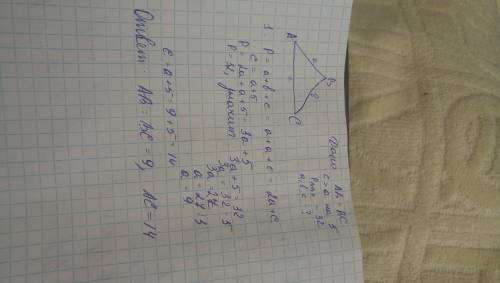 Дано: AB = AC
c > a на 5
P = 32
a, b, c - ?
A
B
C
a
b
1. P = a + b + c = a + a + c = 2a + c
c = a + 5
P = 2a + a + 5 = 3a + 5
P = 32, значит 3a + 5 = 32
3a = 32 - 5
3a = 27
a = 27 : 3
a = 9
c = a + 5 = 9 + 5 = 14
Ответ: AB = BC = 9, AC = 14